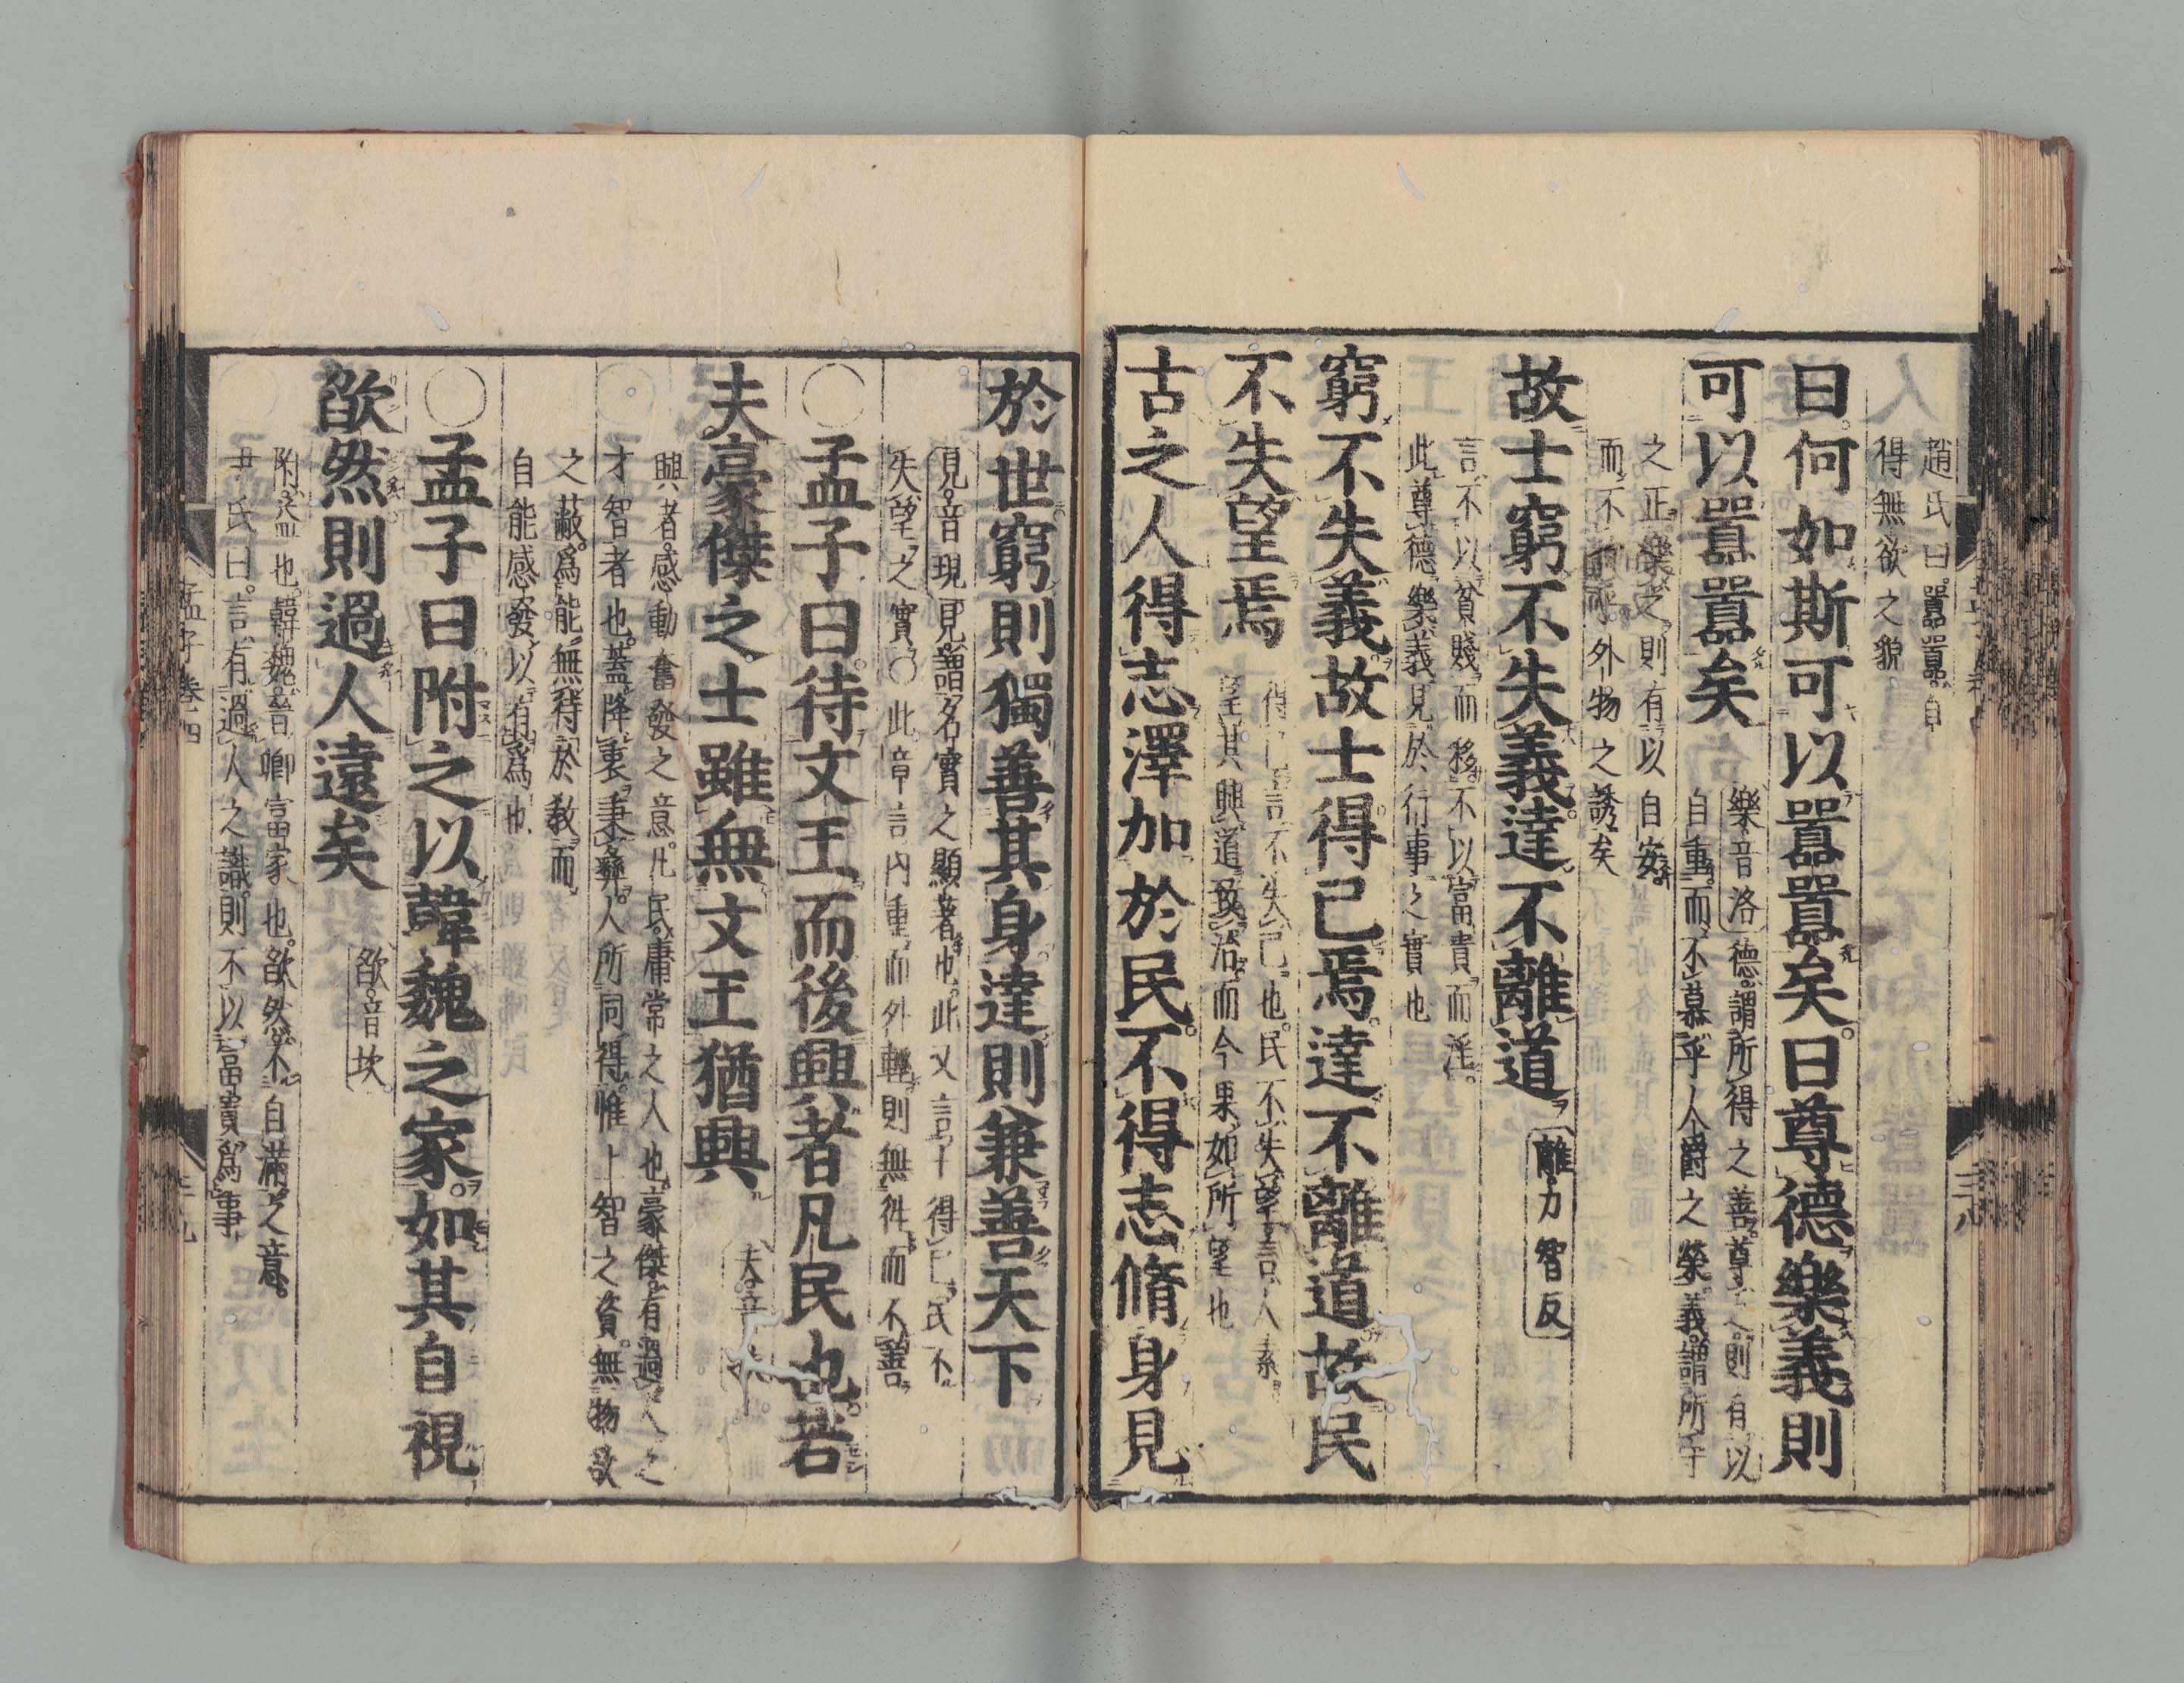 趙氏曰囂囂自
得無欲之貌
曰何如斯可以囂囂矣曰尊德樂義則
可以囂囂矣
樂音洛德謂所得之善尊之則有以
自重而不慕乎人爵之榮義謂所守
之正樂之則有以自安
而不 乎外物之誘矣
故士窮不失義達不離道
離力智反
言不以貧賤而移不以富貴而淫
此尊德樂義見於行事之實也
窮不失義故士得己焉達不離道故民
不失望焉
得己言不失己也民不失望言人素
望其興道致治而今果如所望也
古之人得志澤加於民不得志脩身見
於世窮則獨善其身達則兼善天下
見音現見謂名實之顯著也此又言士得己民不
失望之實○此章言內重而外輕則無徃而不善
○孟子曰待文王而後興者凡民也若
夫豪傑之士雖無文王猶興
夫音扶
興者感動奮發之意凡民庸常之人也豪傑有過人之
才智者也蓋降衷秉彝人所同得惟上智之資無物欲
之蔽爲能無待於教而
自能感發以有爲也
○孟子曰附之以韓魏之家如其自視
欿然則過人遠矣
欿音坎
附益也韓魏晉卿富家也欿然不自滿之意
尹氏曰言有過人之識則不以富貴爲事
孟子卷四